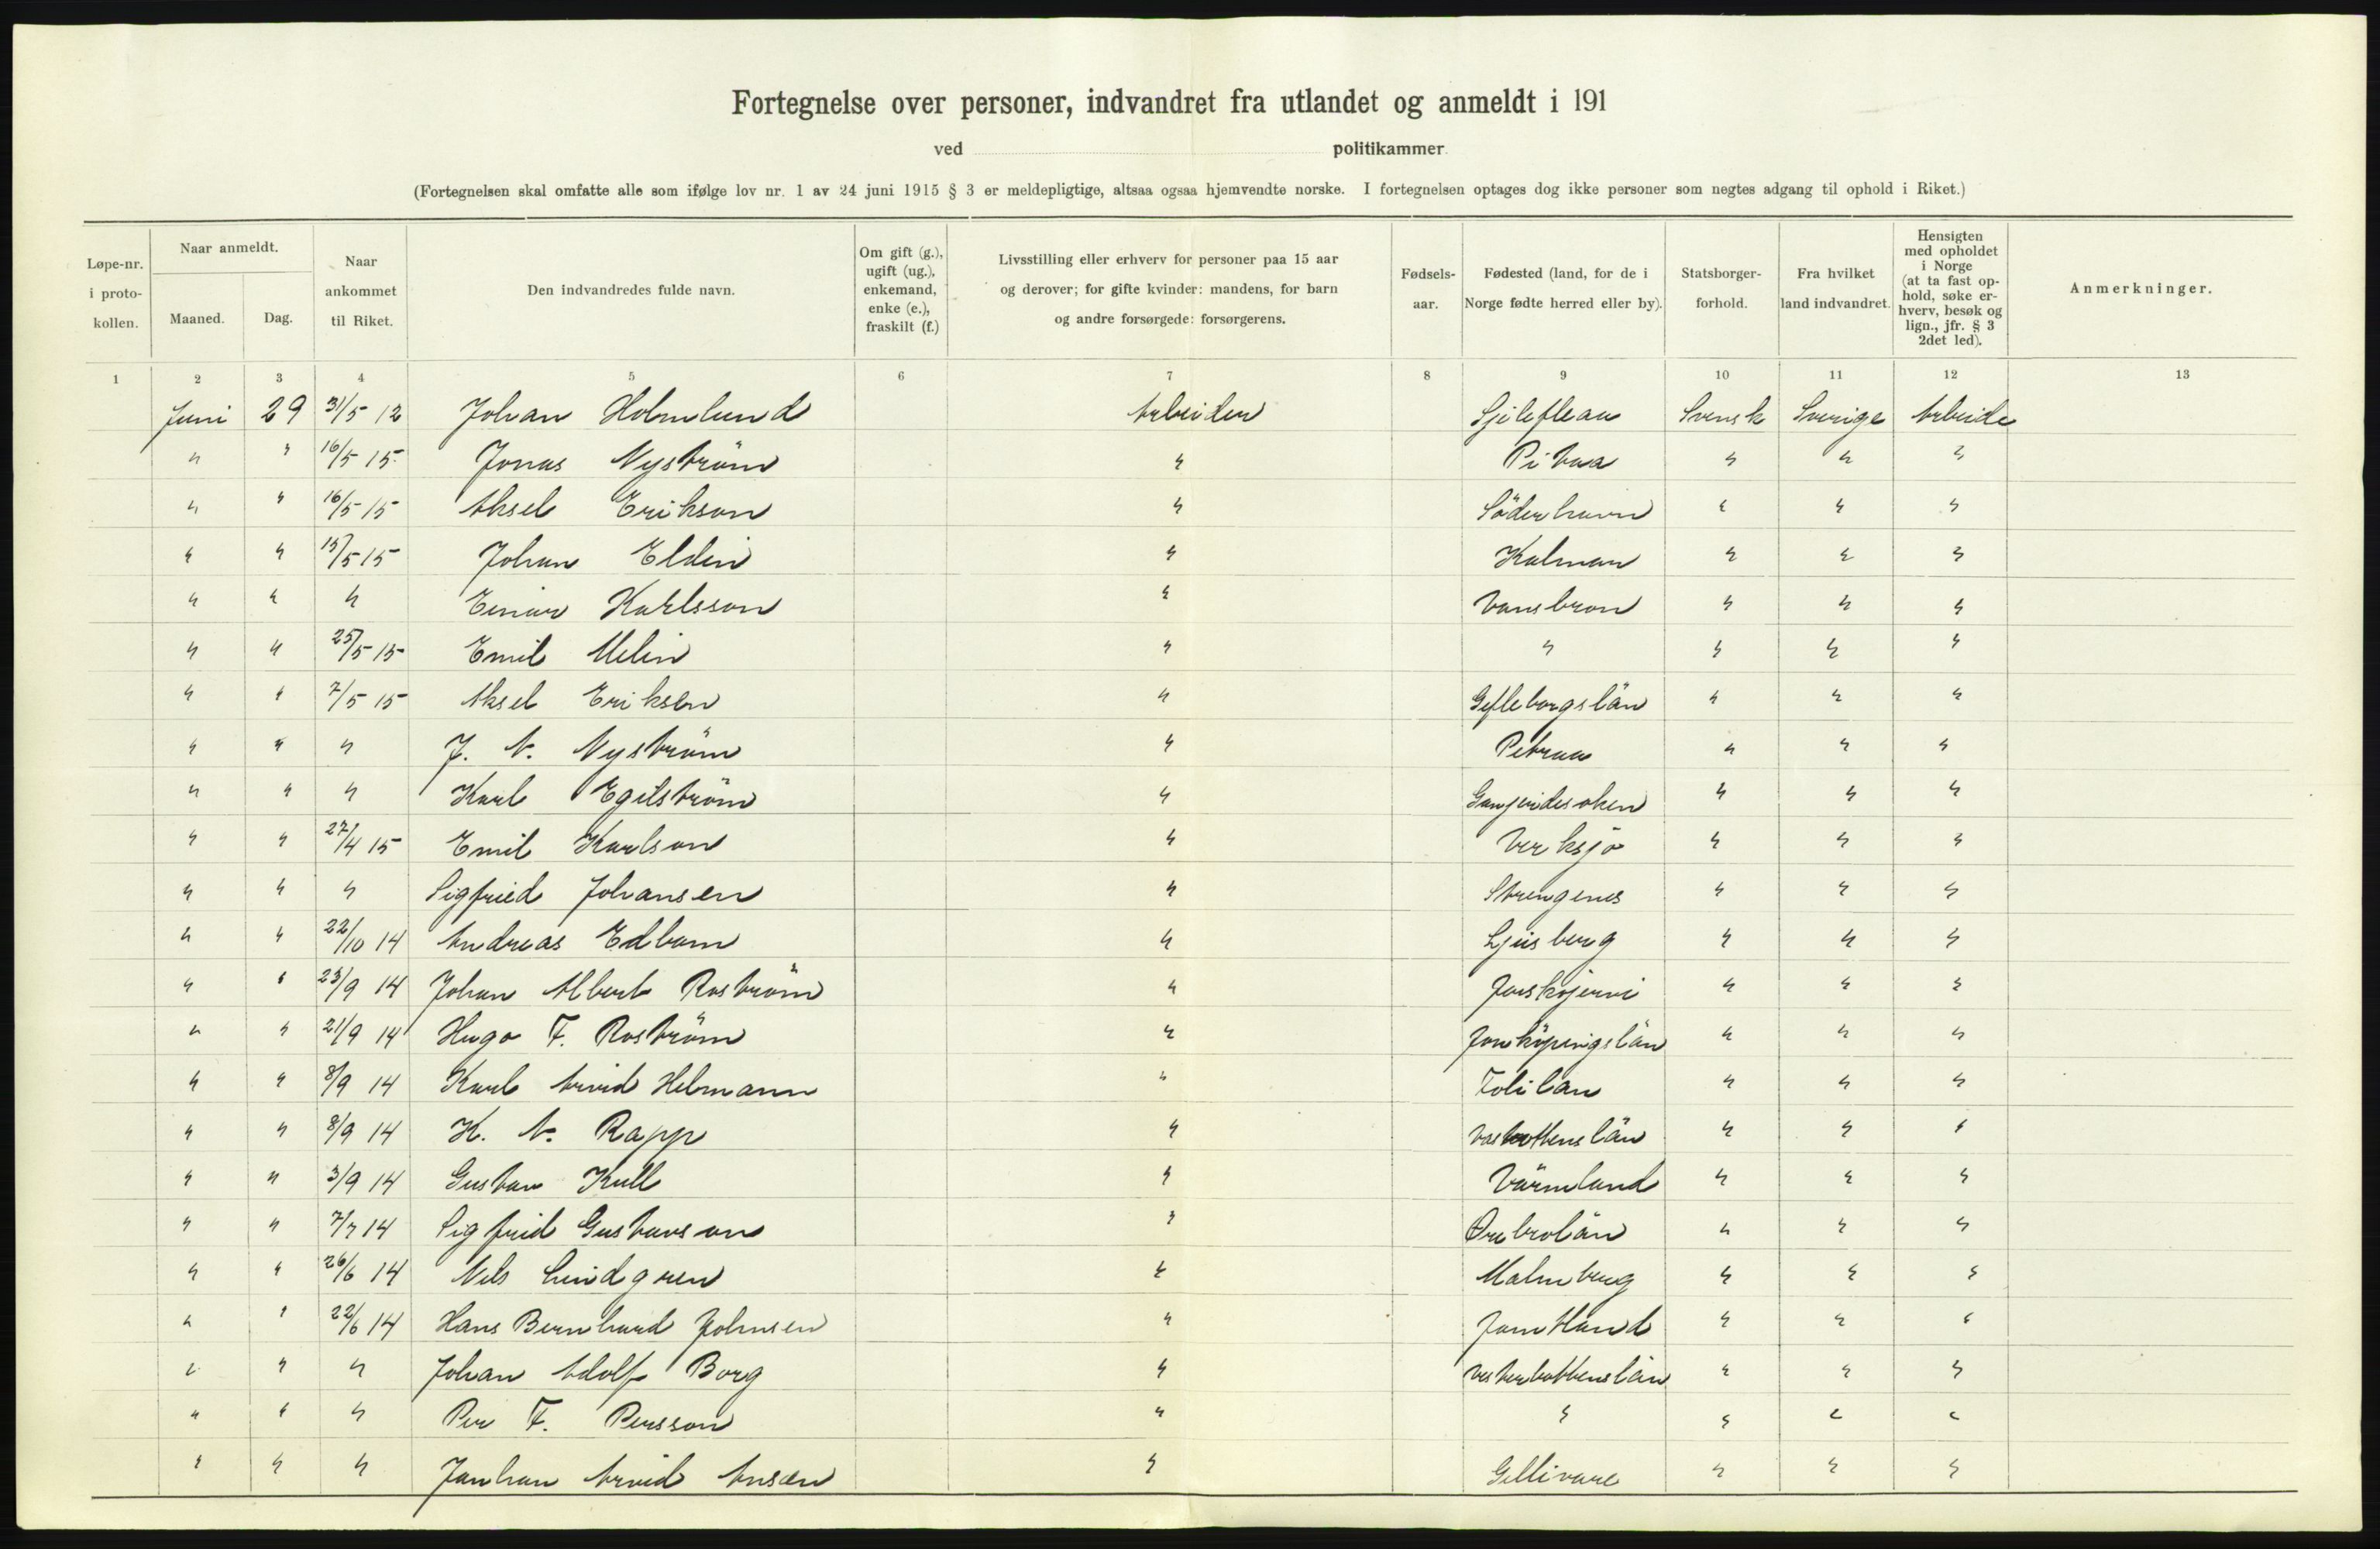 Fortegnelse over personer, indvandret fra utlandet og anmeldt i 191
ved politikammer
(Fortegnelsen skal omfatte alle som ifølge lov nr. 1 av 24 juni 1915 § 3 er meldepligtige, altsaa ogsaa hjemvendte norske. I fortegnelsen optages dog ikke personer som negtes adgang til ophold i Riket.)
Løpe-nr. i proto- kollen.
Naar anmeldt.
Maaned.
Dag.
Naar ankommet til Riket.
Den indvandredes fulde navn.
Om gift (g.), ugift (ug.), enkemand, enke (e.), fraskilt (f.)
Livsstilling eller erhverv for personer paa 15 aar og derover; for gifte kvinder: mandens, for barn og andre forsørgede: forsørgerens.
Fødsels- aar.
Fødested (land, for de i Norge fødte herred eller by).
Statsborger- forhold.
Fra hvilket land indvandret.
Hensigten med opholdet i Norge (at ta fast op- hold, søke er- hverv, besøk og lign., jfr. § 3 2det led).
Anmerkninger.
1 2 3 4 5 6 7 8 9 10 11 12 13
Juni 29 31/5 12 Johan Holmlund Arbeider Sjelefleau Svensk Sverige Arbeide
" " 16/5 15 Jonas Nyström " Pitvaa " " "
" " 16/5 15 Aksel Erikson " Söderhavn " " "
" " 15/5 15 Johan Eldin " Kalmar " " "
" " " Einar Karlsson " Vansbron " " "
" " 25/5 15 Emil Melin " " " " "
" " 7/5 15 Aksel Eriksen " Gefleborgslän " " "
" " " J. A. Nyström " " " "
" " " Karl Egilström " " " "
" " 27/4 15 Emil Karlson " Verksjö " " "
" " " Sigfried Johansen " Strengenes " " "
" " 22/10 14 Andreas Edbom " Ljusberg " " "
" " 23/9 14 Johan Albert Roström " " " "
" " 21/9 14 Hugo F. Roström " Jonköpingslän " " "
" " 8/9 14 Karl Arvid Helmann " " " "
" " 8/9 14 K. A. Rapp " Vasbottenslän " " "
" " 3/9 14 Gustav Kull " Värmland " " "
" " 7/7 14 Sigfrid Gustavson " Ørebrolän " " "
" " 26/6 14 Nils Lindgren " Malmberg " " "
" " 22/6 14 Hans Bernhard Johnsen " Jamtland " " "
" " " Johan Adolf Borg " Vesterbottenslän " " "
" " " Per F. Persson " " " " "
" " " Arvid " Gellivare " " "